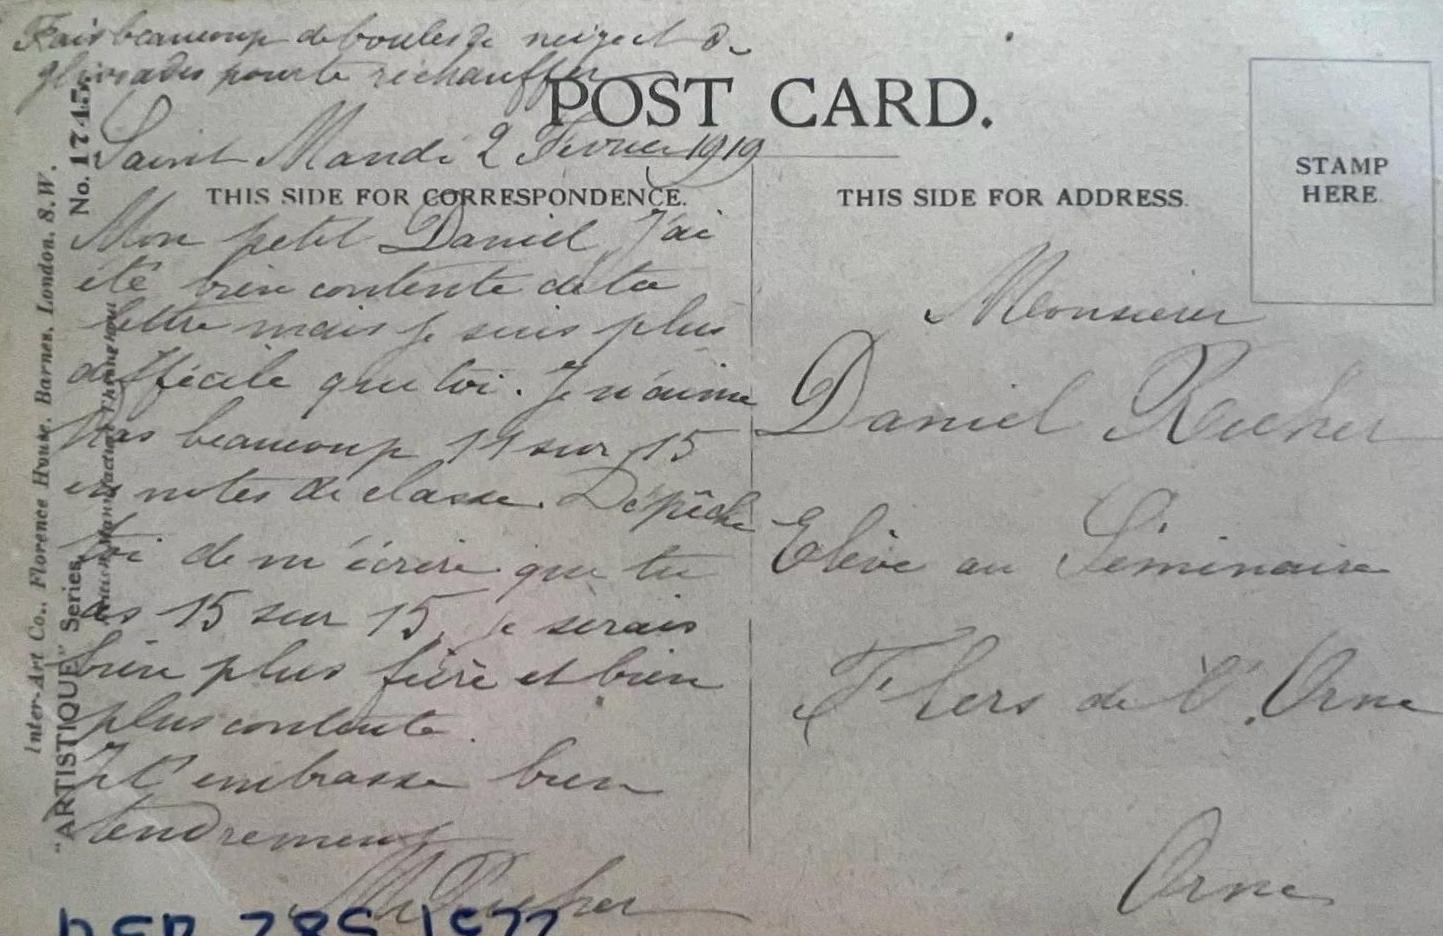 Fais beaucoup de boules de neige et de
glissades pour te réchauffer
POST CARD.
Saint Mandé 2 Février 1919
THIS SIDE FOR CORRESPONDENCE.
Mon petit Daniel, J'ai
été bien contente de ta
lettre mais je suis plus
difficile que toi. Je n'aime
pas beaucoup 11 sur 15
en notes de classe. Dépêche
toi de m'écrire que tu
as 15 sur 15, je serais
bien plus fière et bien
plus contente.
Je t'embrasse bien
tendrement
THIS SIDE FOR ADDRESS.
STAMP
HERE.
Monsieur
Daniel
Elève au Séminaire
Flers de l'Orne
Orne
Inter-Art Co., Florence House, Barnes, London, S.W.
"ARTISTIQUE" Series. No. 1745
British Manufacture Throughout